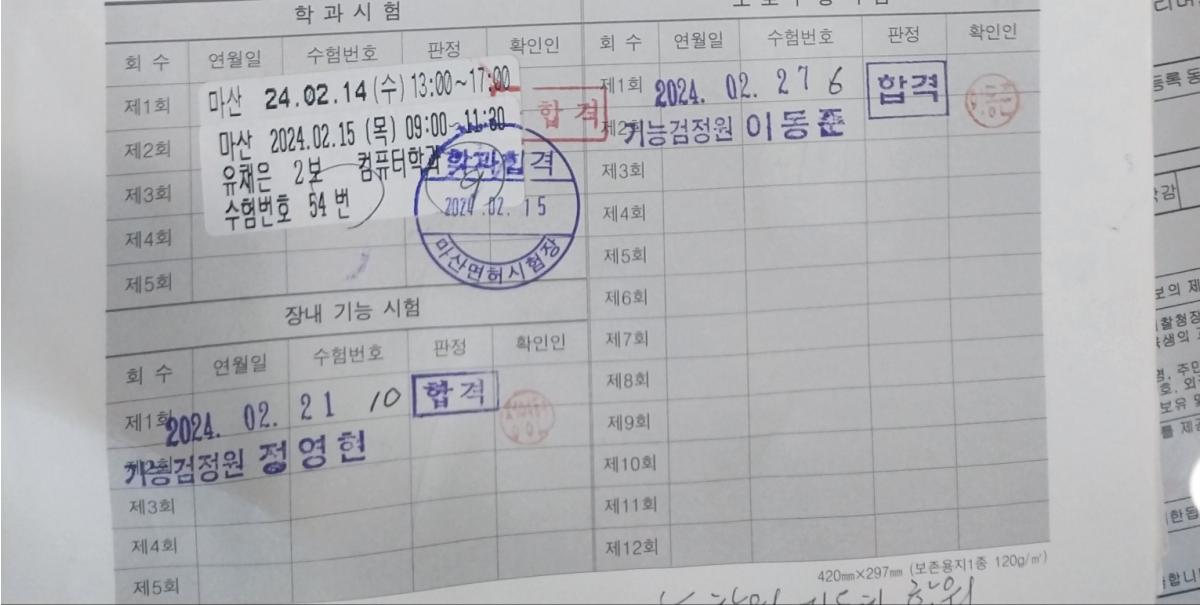 학 과 시 험
회 수 연월일 수험번호 판정 확인인
제1회
마산 24.02.14 (수) 13:00~17:00
합 격
제2회
마산 2024.02.15 (목) 09:00~11:30
유채은 2보 컴퓨터학과
수험번호 54 번
학과합격
2024.02.15
마산면허시험장
제3회
제4회
제5회
장내 기능 시험
회 수 연월일 수험번호 판정 확인인
제1회 2024. 02. 21 10 합 격
기능검정원 정영헌
제3회
제4회
제5회
회 수 연월일 수험번호 판정 확인인
제1회 2024. 02. 27 6 합격
제2회 기능검정원 이동준
제3회
제4회
제5회
제6회
제7회
제8회
제9회
제10회
제11회
제12회
420㎜×297㎜ (보존용지1종 120g/㎡)